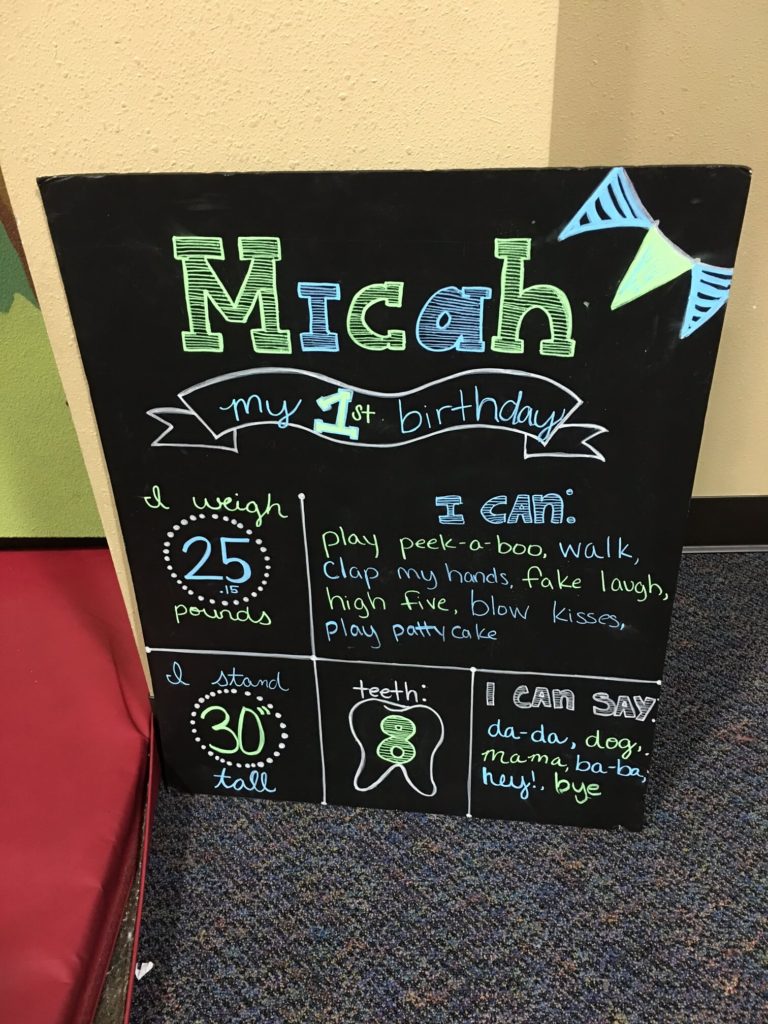 Micah
my 1st birthday
I weigh
25
.15
pounds
I CAN:
play peek-a-boo, walk,
clap my hands, fake laugh,
high five, blow kisses,
play pattycake
I stand
30"
tall
teeth:
8
I CAN SAY:
da-da, dog,
mama, ba-ba,
hey!, bye